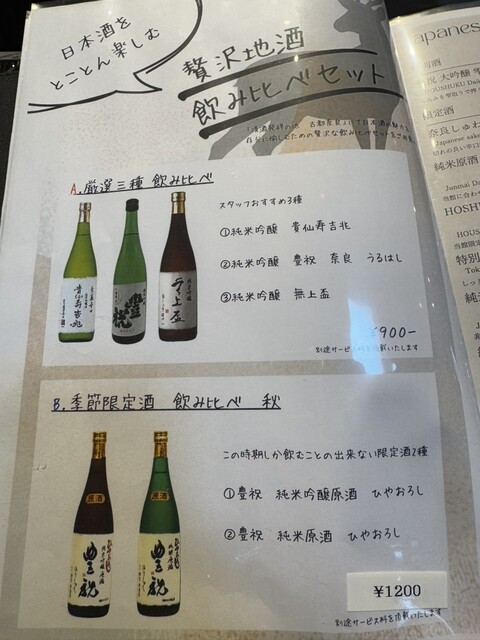 日本酒を
とことん楽しむ
贅沢地酒
飲み比べセット
A.厳選三種 飲み比べ
スタッフおすすめ3種
①純米吟醸 貴仙寿吉兆
②純米吟醸 豊祝 奈良 うるはし
③純米吟醸 無上盃
貴仙寿吉兆
豊祝
無上盃
¥900-
別途サービス料を頂戴いたします
B.季節限定酒 飲み比べ 秋
この時期しか飲むことの出来ない限定酒2種
①豊祝 純米吟醸原酒 ひやおろし
②豊祝 純米原酒 ひやおろし
原酒
原酒
豊祝
豊祝
¥1200
別途サービス料を頂戴いたします
apanes
大吟醸
HOUSHUKU Dai
限定酒
奈良しゅわ
Japanese sake
純米原酒
Junmai Da
HOSH
HOUS
特別
Tok
純